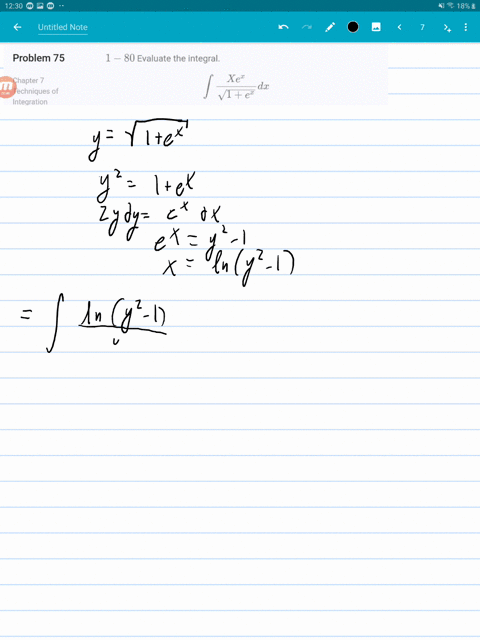 12:30 18%
Untitled Note 7
Problem 75 1 − 80 Evaluate the integral.
Chapter 7
Techniques of
Integration
∫ Xeˣ / √(1 + eˣ) dx
y = √(1 + eˣ)
y² = 1 + eˣ
2y dy = eˣ dx
eˣ = y² - 1
x = ln(y² - 1)
= ∫ ln(y² - 1)